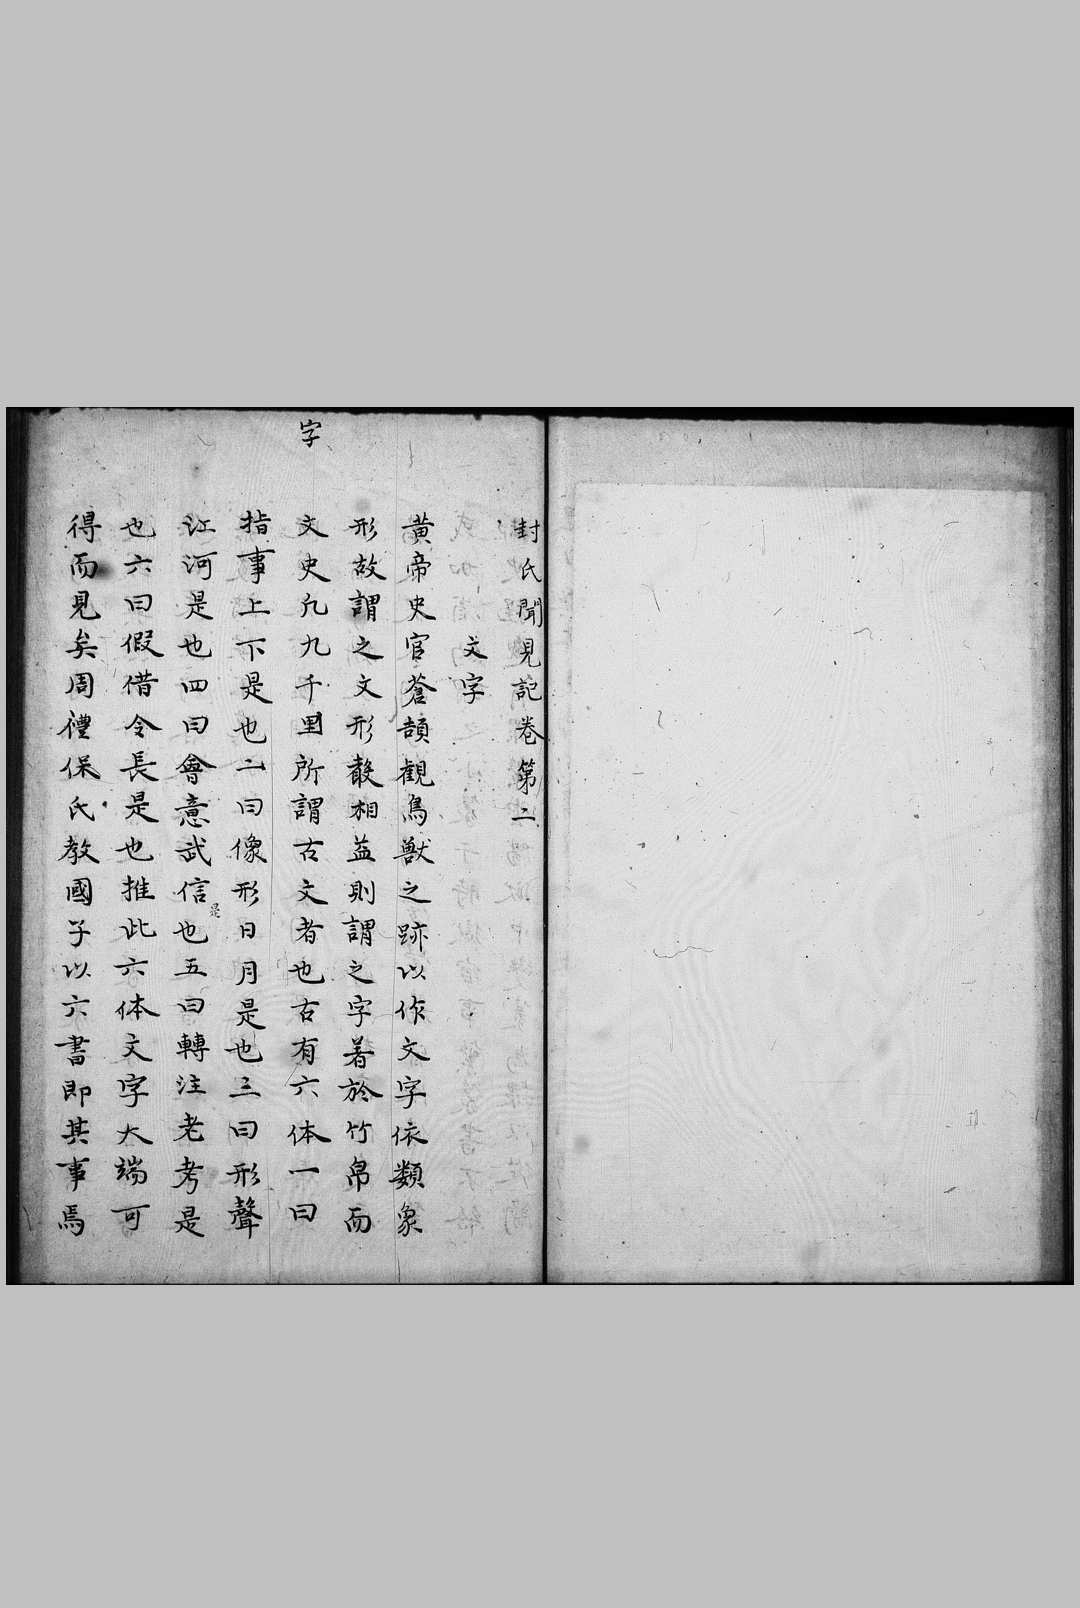 封氏聞見記卷第二
文字
黄帝史官蒼頡觀鳥獸之跡以作文字依類象
形故謂之文形聲相益則謂之字著於竹帛而
字
文史凡九千里所謂古文者也古有六体一曰
指事上下是也二曰像形日月是也三曰形聲
江河是也四曰會意武信是也五曰轉注老考是
也六曰假借令長是也推此六体文字大端可
得而見矣周禮保氏教國子以六書即其事焉